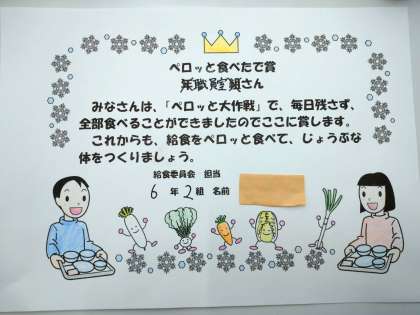 ペロッと食べたで賞
組さん
みなさんは、「ペロッと大作戦」で、毎日残さず、
全部食べることができましたのでここに賞します。
これからも、給食をペロッと食べて、じょうぶな
体をつくりましょう。
給食委員会 担当
6年2組 名前